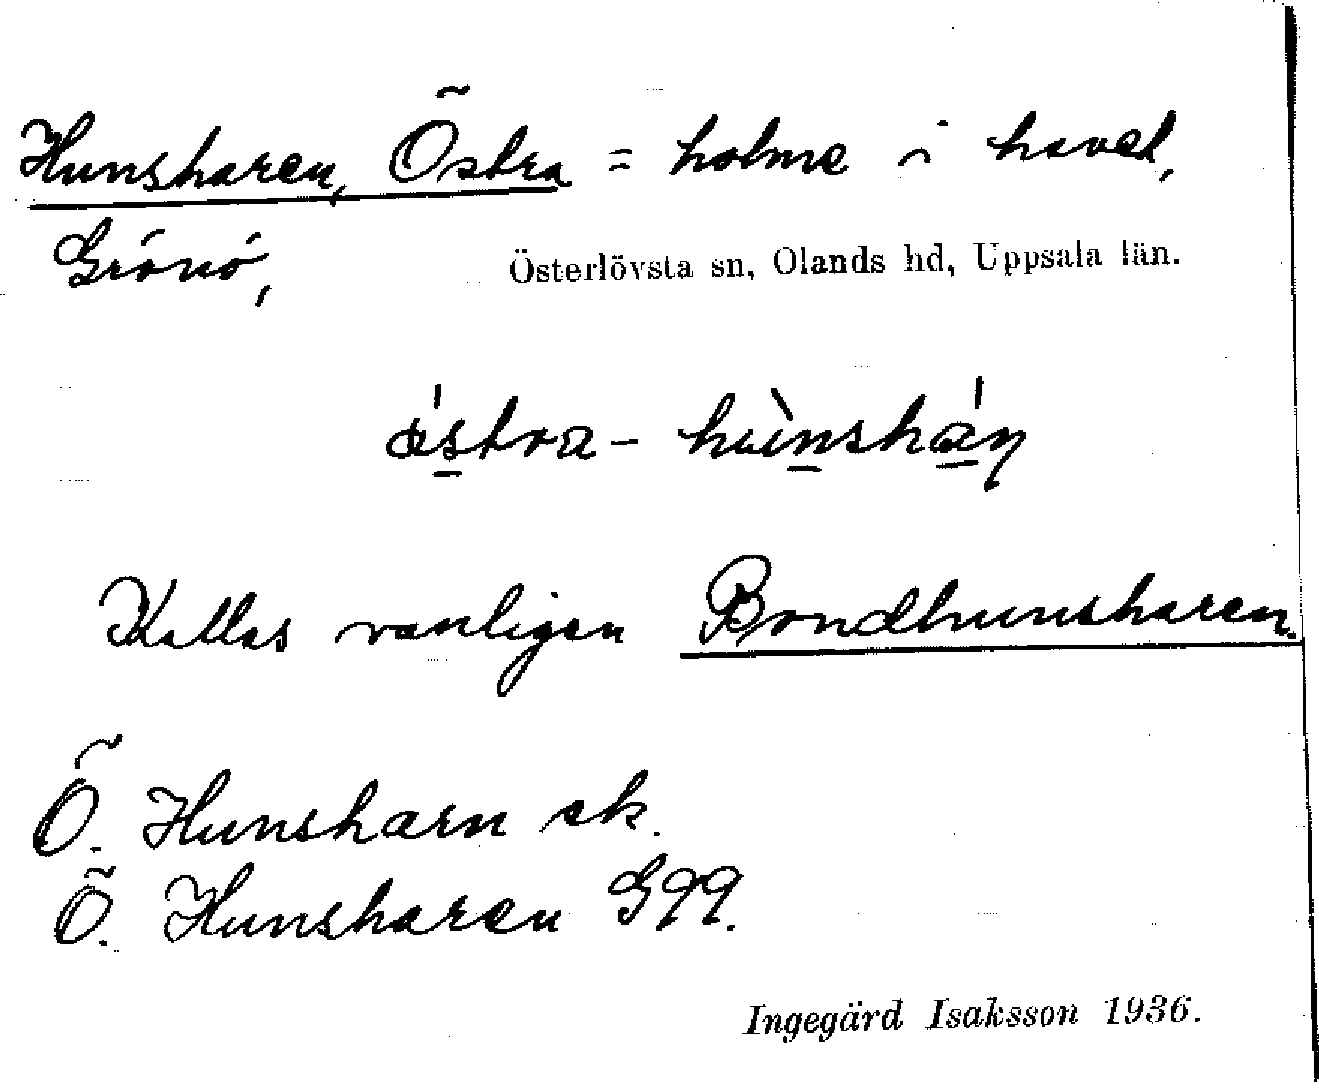 Hunsharen, Östra = holme i havet,
Grönö, Österlövsta sn, Olands hd, Uppsala län.
Kallas vanligen Bondhunsharen.
Ö. Hunsharn ek.
Ö. Hunsharen G99.
Ingegärd Isaksson 1936.